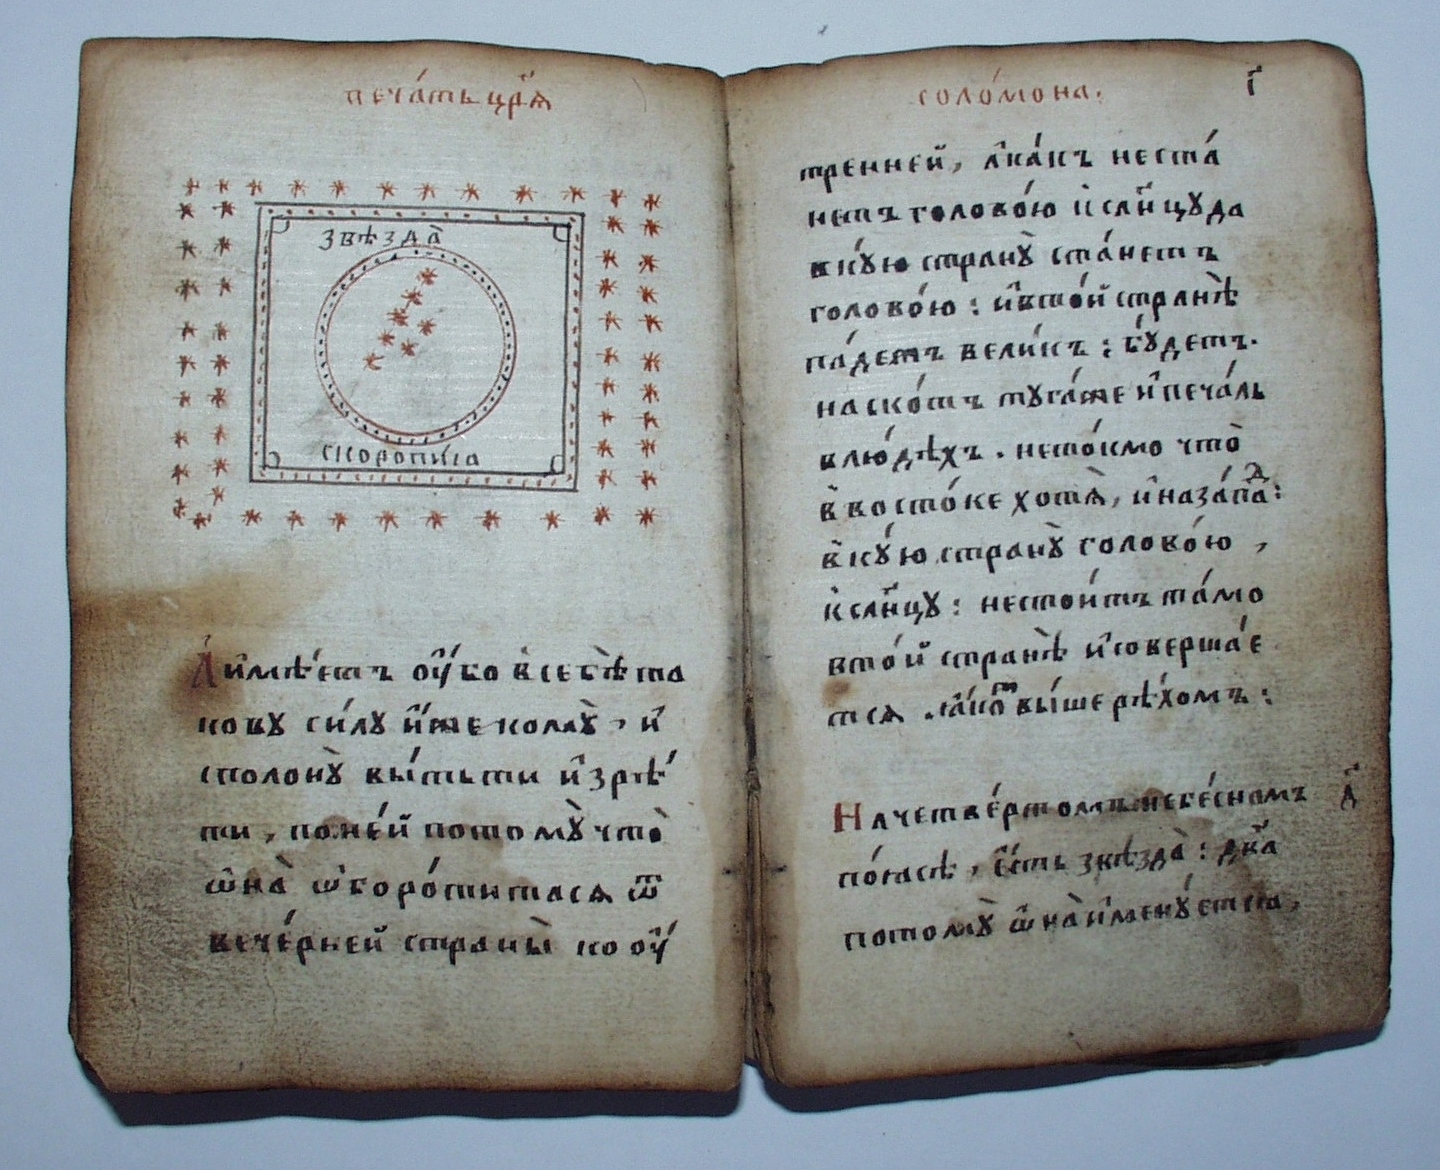 печа́ть цр҃ѧ
ꙁвѣꙁда̀
скоропиꙗ
А҆ и҆мѣ́етъ ᲂу҆̀бо в себѣ̀ та
кову си́лу и҆̀же колѧꙋ̀, и҆
сполонꙋ̀ вы́тьти и҆ зрѣ́
ти, по не́й потомꙋ̀ что̀
ѡ҆на̀ ѡ҆боро́титасѧ ѿ
вече́рней страны̀ ко ᲂу҆́
соло́мона.
г҃
тренней, а҆ ка́къ неста́
нетъ голово́ю к̾ сл҃нцу да
в кꙋ́ю странꙋ̀ ста́нетъ
голово́ю: и҆ в то́й странѣ̀
па́детъ вели́къ: бꙋ́детъ.
на ско́тъ туга́ же и҆ печа́ль
в лю́дѣхъ. не то́кмо что̀
в̾ восто́ке хотѧ̀, и҆ на за́падⷣ:
в̾ кꙋ́ю странꙋ̀ голово́ю,
к̾ сл҃нцꙋ: не стои́тъ та́мо
в то́й странѣ̀ и҆ соверша́е
тсѧ. ꙗ҆́коⷤ вы́ше рѣ́хомъ:
На четве́ртомъ небе́сномъ
д҃
по́ꙗсѣ, є҆́сть ꙁвѣꙁда̀: дв҃а
потомꙋ̀ ѡ҆на̀ и҆менꙋ́етсѧ,